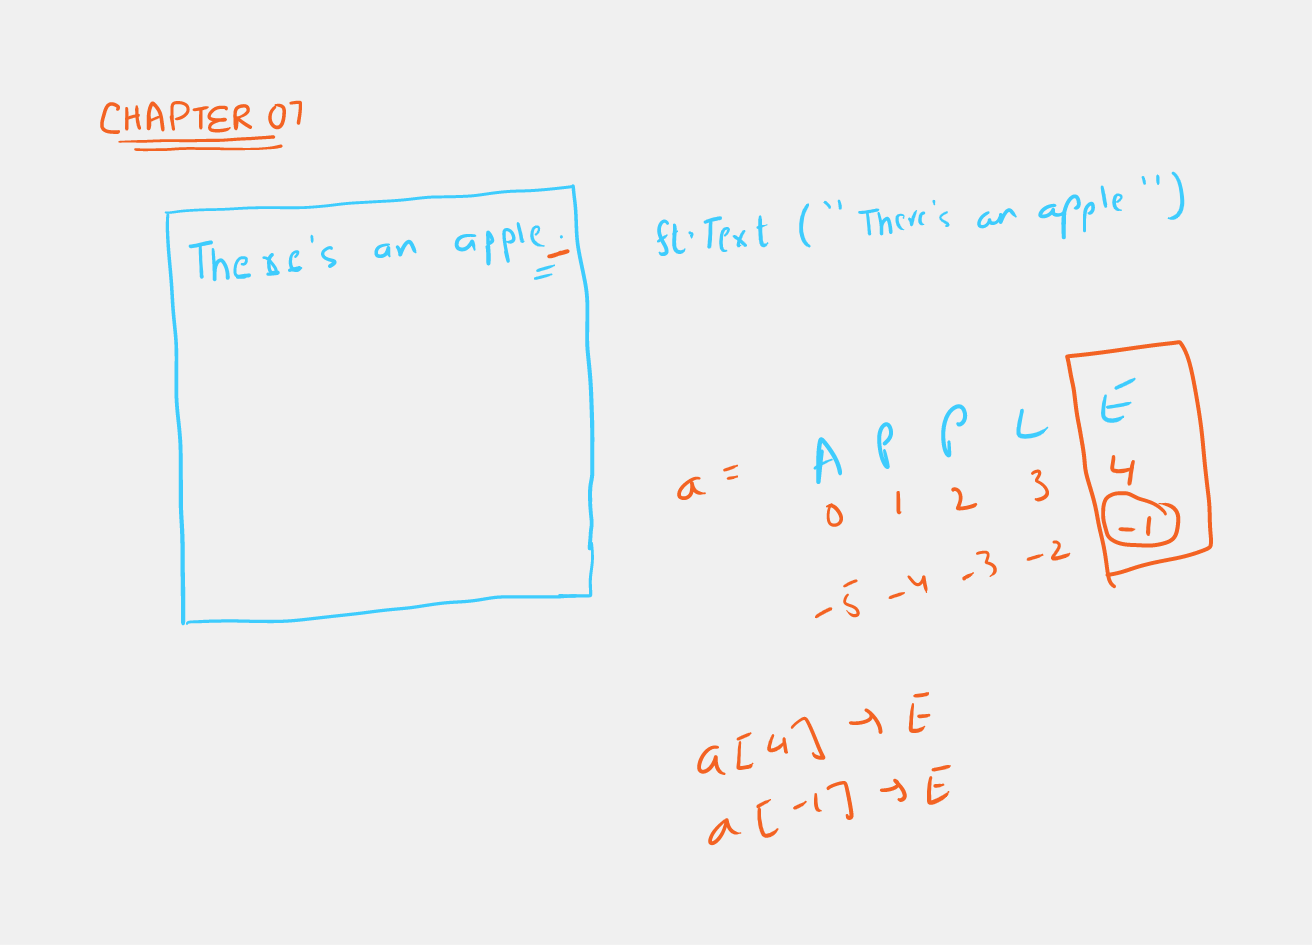 CHAPTER 07
There's an apple.
ft.Text ("There's an apple")
a = A P P L E
0 1 2 3 4
-5 -4 -3 -2 -1
a[4] → E
a[-1] → E